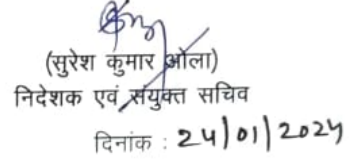 (सुरेश कुमार ओला)
निदेशक एवं संयुक्त सचिव
दिनांक : 24/01/2024